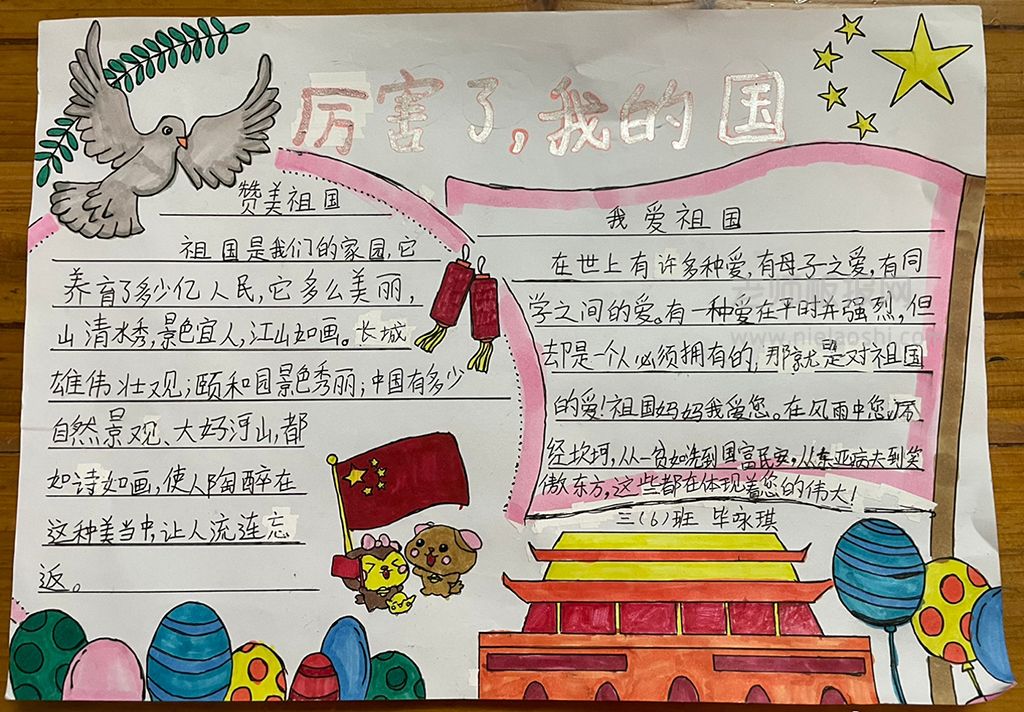 厉害了，我的国
赞美祖国
祖国是我们的家园，它
养育了多少亿人民，它多么美丽，
山清水秀，景色宜人，江山如画。长城
雄伟壮观；颐和园景色秀丽；中国有多少
自然景观、大好河山，都
如诗如画，使人陶醉在
这种美当中，让人流连忘
返。
我爱祖国
在世上有许多种爱，有母子之爱，有同
学之间的爱。有一种爱在平时并强烈，但
却是一个人必须拥有的，那就是对祖国
的爱！祖国妈妈我爱您。在风雨中您历
经坎坷，从一贫如洗到国富民安，从东亚病夫到笑
傲东方，这些都在体现着您的伟大！
三（6）班 毕咏琪
老师板报网